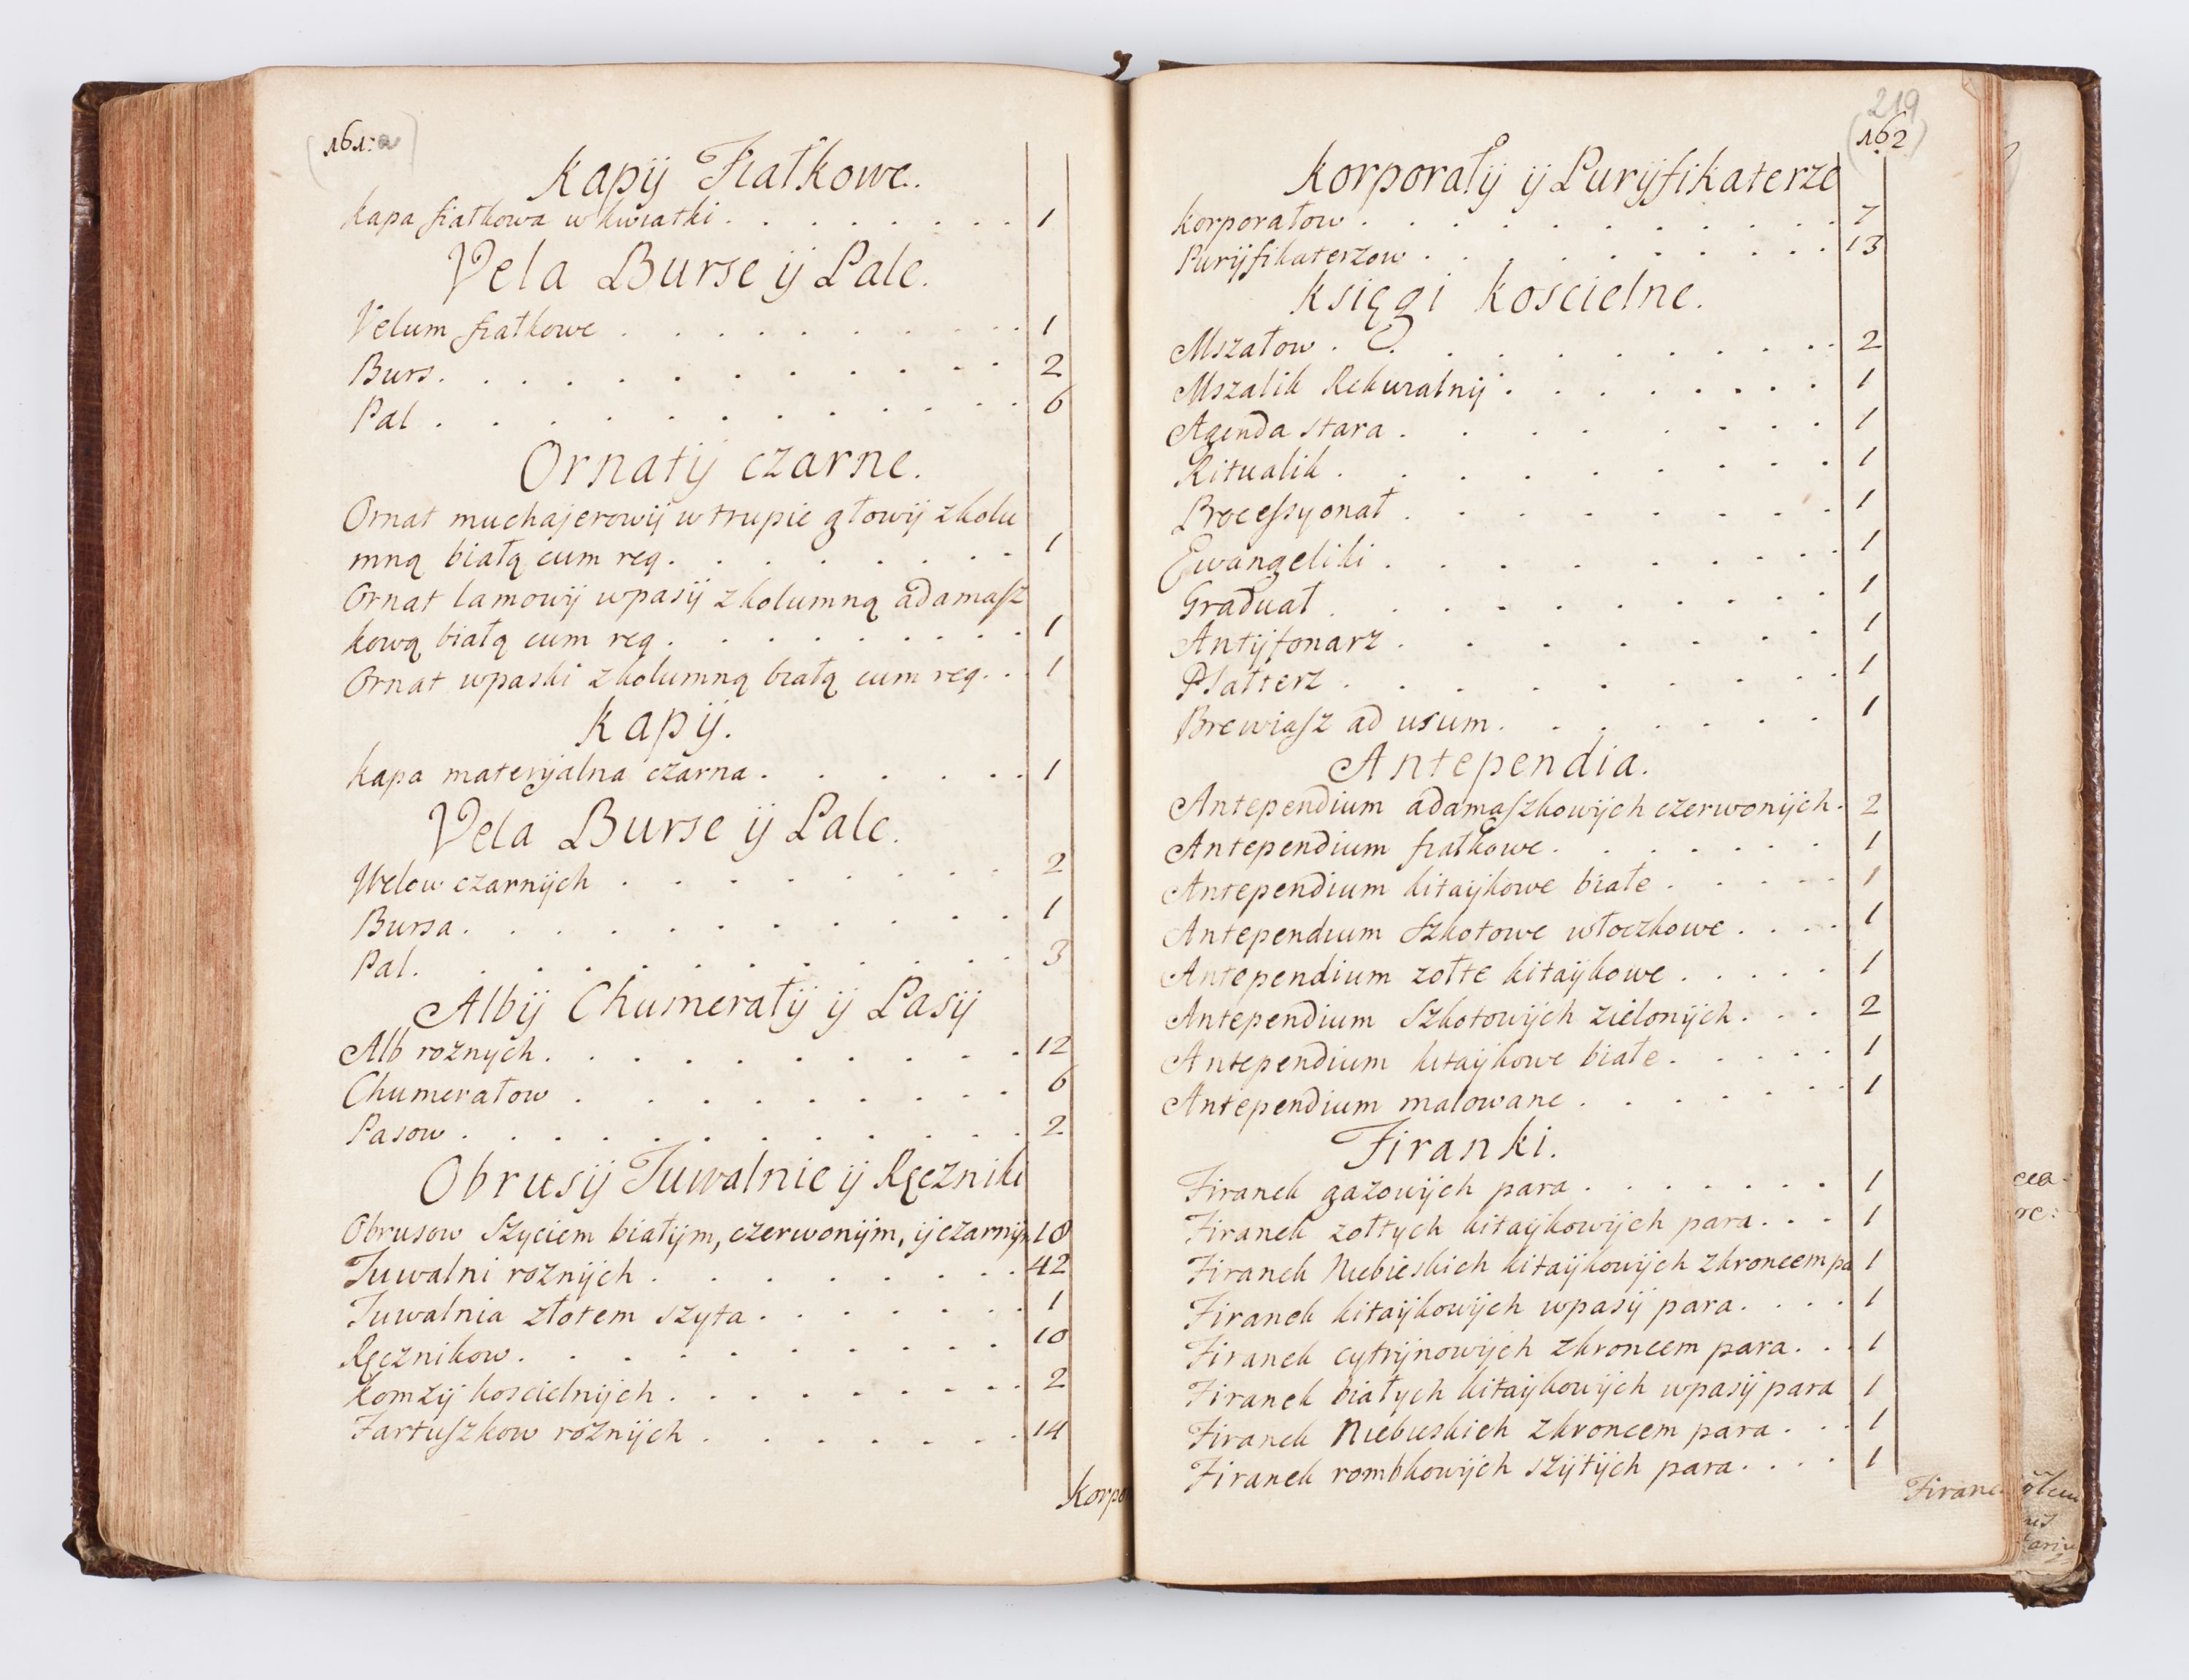 161:a
Kapij Fiałkowe.
Kapa fiałkowa w kwiatki . . . . . . . . 1
Vela Burse ij Pale.
Velum fiałkowe . . . . . . . . . 1
Burs. . . . . . . . . . . . 2
Pal . . . . . . . . . . . 6
Ornatij czarne.
Ornat muchajerowij w trupie głowij z kolu
mną białą cum req. . . . . . . . 1
Ornat lamowij w pasij z kolumną adamasz
kową białą cum req . . . . . . . . . 1
Ornat w paski z kolumną białą cum req. . . 1
Kapij.
Kapa materijalna czarna . . . . . . 1
Vela Burse ij Pale.
Welow czarnijch . . . . . . . . 2
Bursa. . . . . . . . . . . 1
Pal. . . . . . . . . . . . 3
Albij Chumerałij ij Pasij
Alb roznych. . . . . . . . . . 12
Chumerałow . . . . . . . . . 6
Pasow . . . . . . . . . . . 2
Obrusij Tuwalnie ij Ręczniki
Obrusow Szyciem białijm, czerwonijm, ij czarnijm 18
Tuwalni roznijch . . . . . . . . 42
Tuwalnia złotem szyta . . . . . . . 1
Ręcznikow. . . . . . . . . . 10
Komzij koscielnijch . . . . . . . . . 2
Fartuszkow roznijch . . . . . . . 14
Korpo
219
162
Korporałij ij Purijfikaterze
Korporałow . . . . . . . . . . 7
Purijfikaterzow . . . . . . . . . 13
Księgi Koscielne.
Mszałow . . . . . . . . . . 2
Mszalik Rekwialnij . . . . . . . 1
Agenda stara . . . . . . . . 1
Ritualik . . . . . . . . . 1
Processyonał . . . . . . . . 1
Ewangeliki . . . . . . . . 1
Graduał . . . . . . . . . 1
Antijfonarz . . . . . . . 1
Psałterz . . . . . . . . . 1
Brewiasz ad usum. . . . . . . 1
Antependia.
Antependium adamaszkowijch czerwonijch . 2
Antependium fiałkowe . . . . . . . 1
Antependium kitaijkowe białe . . . . . 1
Antependium Szkotowe włoczkowe . . . . 1
Antependium zołte kitaijkowe . . . . . 1
Antependium Szkotowijch zielonijch . . . 2
Antependium kitaijkowe białe . . . . . 1
Antependium malowane . . . . . . . 1
Firanki.
Firanek gazowijch para . . . . . . . 1
Firanek zołtych kitaijkowijch para . . . 1
Firanek Niebieskich kitaijkowijch z kroncem pa 1
Firanek kitaijkowijch w pasij para . . . . 1
Firanek cytrijnowijch z kroncem para . . . 1
Firanek białych kitaijkowijch w pasij para 1
Firanek Niebieskich z kroncem para . . . 1
Firanek rombkowijch szijtijch para . . . . 1
Firane